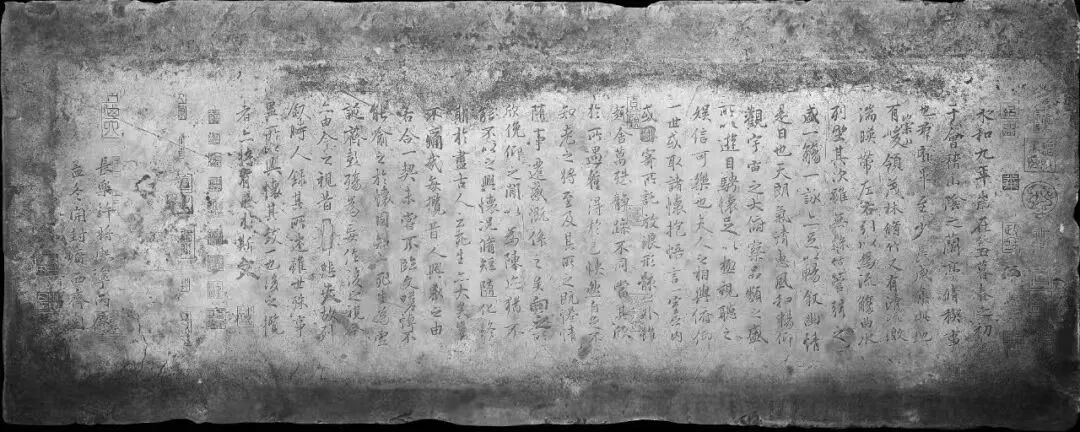 永和九年歲在癸丑暮春之初
于會稽山陰之蘭亭脩稧事
也羣賢畢至少長咸集此地
有崇山峻領茂林脩竹又有清流激
湍暎帶左右引以為流觴曲水
列坐其次雖無絲竹管弦之
盛一觴一詠亦足以暢敘幽情
是日也天朗氣清惠風和暢仰
觀宇宙之大俯察品類之盛
所以遊目騁懷足以極視聽之
娛信可樂也夫人之相與俯仰
一世或取諸懷抱悟言一室之內
或因寄所託放浪形骸之外雖
趣舍萬殊靜躁不同當其欣
於所遇蹔得於己快然自足不
知老之將至及其所之既惓情
隨事遷感慨係之矣向之所
欣俛仰之閒以為陳迹猶不
能不以之興懷況脩短隨化終
期於盡古人云死生亦大矣豈
不痛哉每攬昔人興感之由
若合一契未嘗不臨文嗟悼不
能喻之於懷固知一死生為虛
誕齊彭殤為妄作後之視今
亦由今之視昔悲夫故列
敘時人錄其所述雖世殊事
異所以興懷其致一也後之攬
者亦將有感於斯文
長樂許將熙寧丙辰
孟冬開封府西齋閱